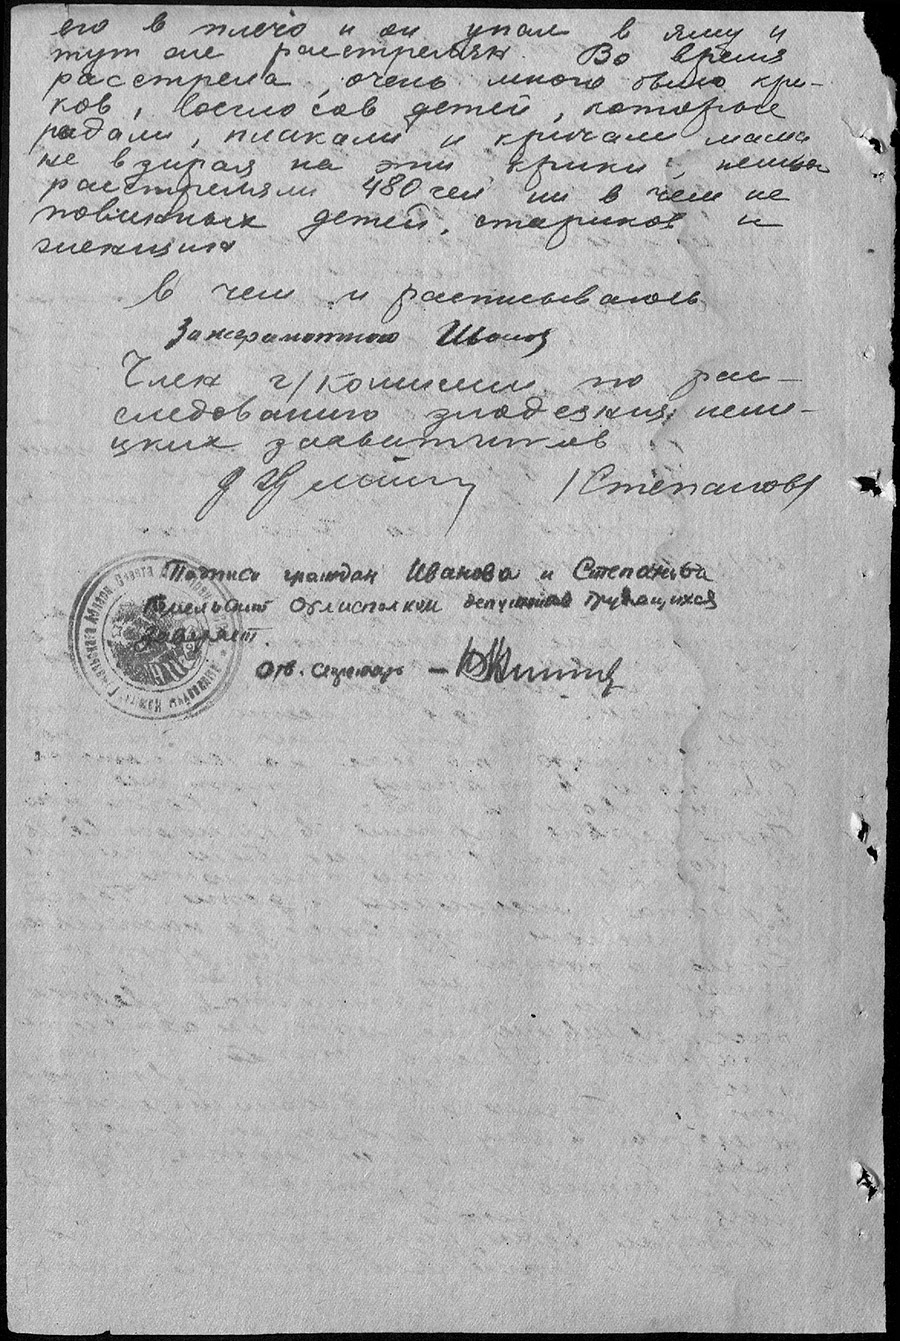 его в плечо и он упал в яму и
тут же расстрелян. Во время
расстрела, очень много было кри-
ков, возгласов детей, которые
рыдали, плакали и кричали мама
не взирая на эти крики, немцы
расстреляли 480 чел ни в чем не
повинных детей, стариков и
женщин
В чем и расписываюсь
За неграмотного Иванов
Член г/комиссии по рас-
следованию злодеяний неме-
цких захватчиков
/Степанов/
Подписи граждан Иванова и Степанова
Гомельский Облисполком депутатов трудящихся
заверяет
Отв. секретарь —